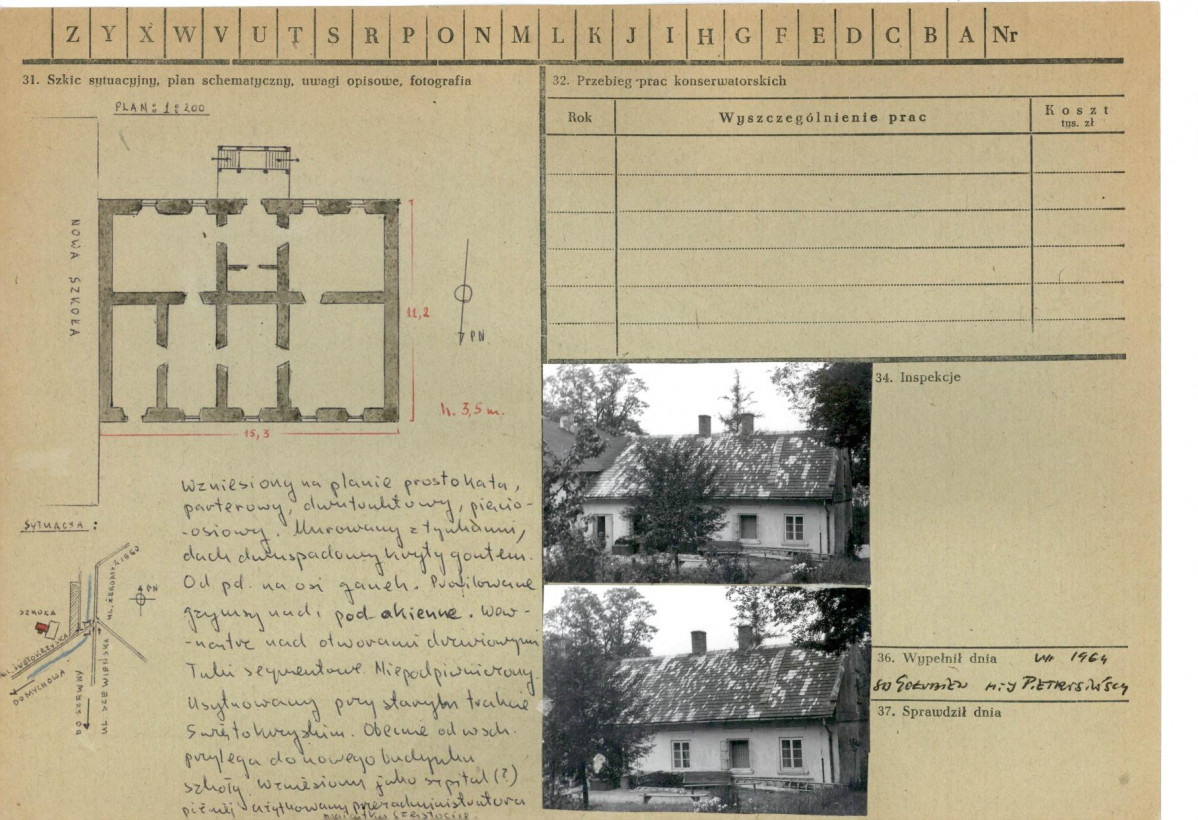 Z Y X W V U T S R P O N M L K J I H G F E D C B A Nr
31. Szkic sytuacyjny, plan schematyczny, uwagi opisowe, fotografia
PLAN: 1:200
NOWA SZKOŁA
11,2
PN
h. 3,5 m.
15,3
Wzniesiony na planie prostokąta,
parterowy, dwutraktowy, pięcio-
-osiowy. Murowany z tynkami,
dach dwuspadowy kryty gontem.
Od pd. na osi ganek. Profilowane
gzymsy nad i pod okienne. Wew-
-nątrz nad otworami drzwiowymi
łuki segmentowe. Niepodpiwniczony.
Usytuowany przy starym trakcie
Świętokrzyskim. Obecnie od wsch.
przylega do nowego budynku
szkoły. Wzniesiony jako szpital (?)
później użytkowany przez administratora
SYTUACJA:
PN
UL. ŻEROMSKIEGO
SZKOŁA
DO MYCHOWA
32. Przebieg prac konserwatorskich
Rok Wyszczególnienie prac Koszt
tys. zł
34. Inspekcje
36. Wypełnił dnia 1964
37. Sprawdził dnia